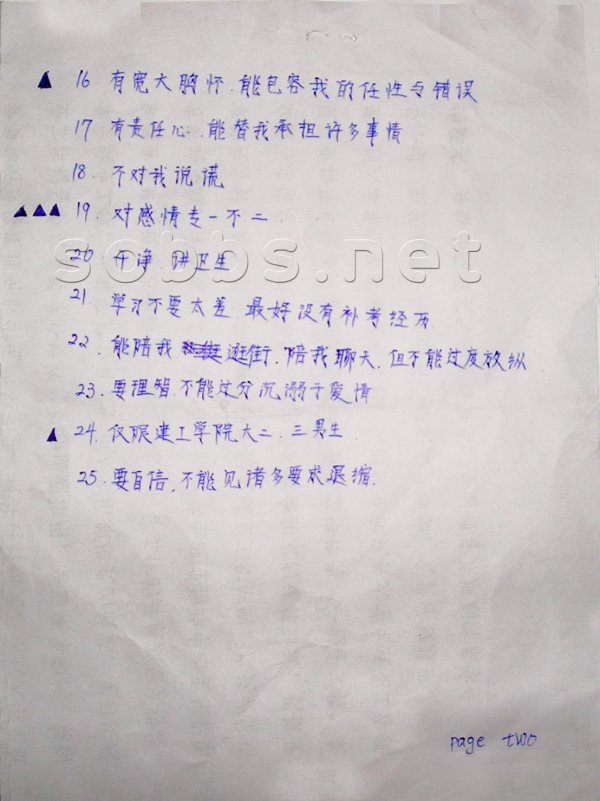 ▲ 16. 有宽大胸怀.能包容我的任性与错误
17 有责任心.能替我承担许多事情
18. 不对我说谎
▲▲▲ 19. 对感情专一不二
sobbs.net
20 干净.讲卫生
21. 学习不要太差 最好没有补考经历
22. 能陪我逛街.陪我聊天.但不能过度放纵
23. 要理智.不能过分沉溺于爱情
▲ 24. 仅限建工学院大二.三男生
25. 要自信,不能见诸多要求退缩.
page two